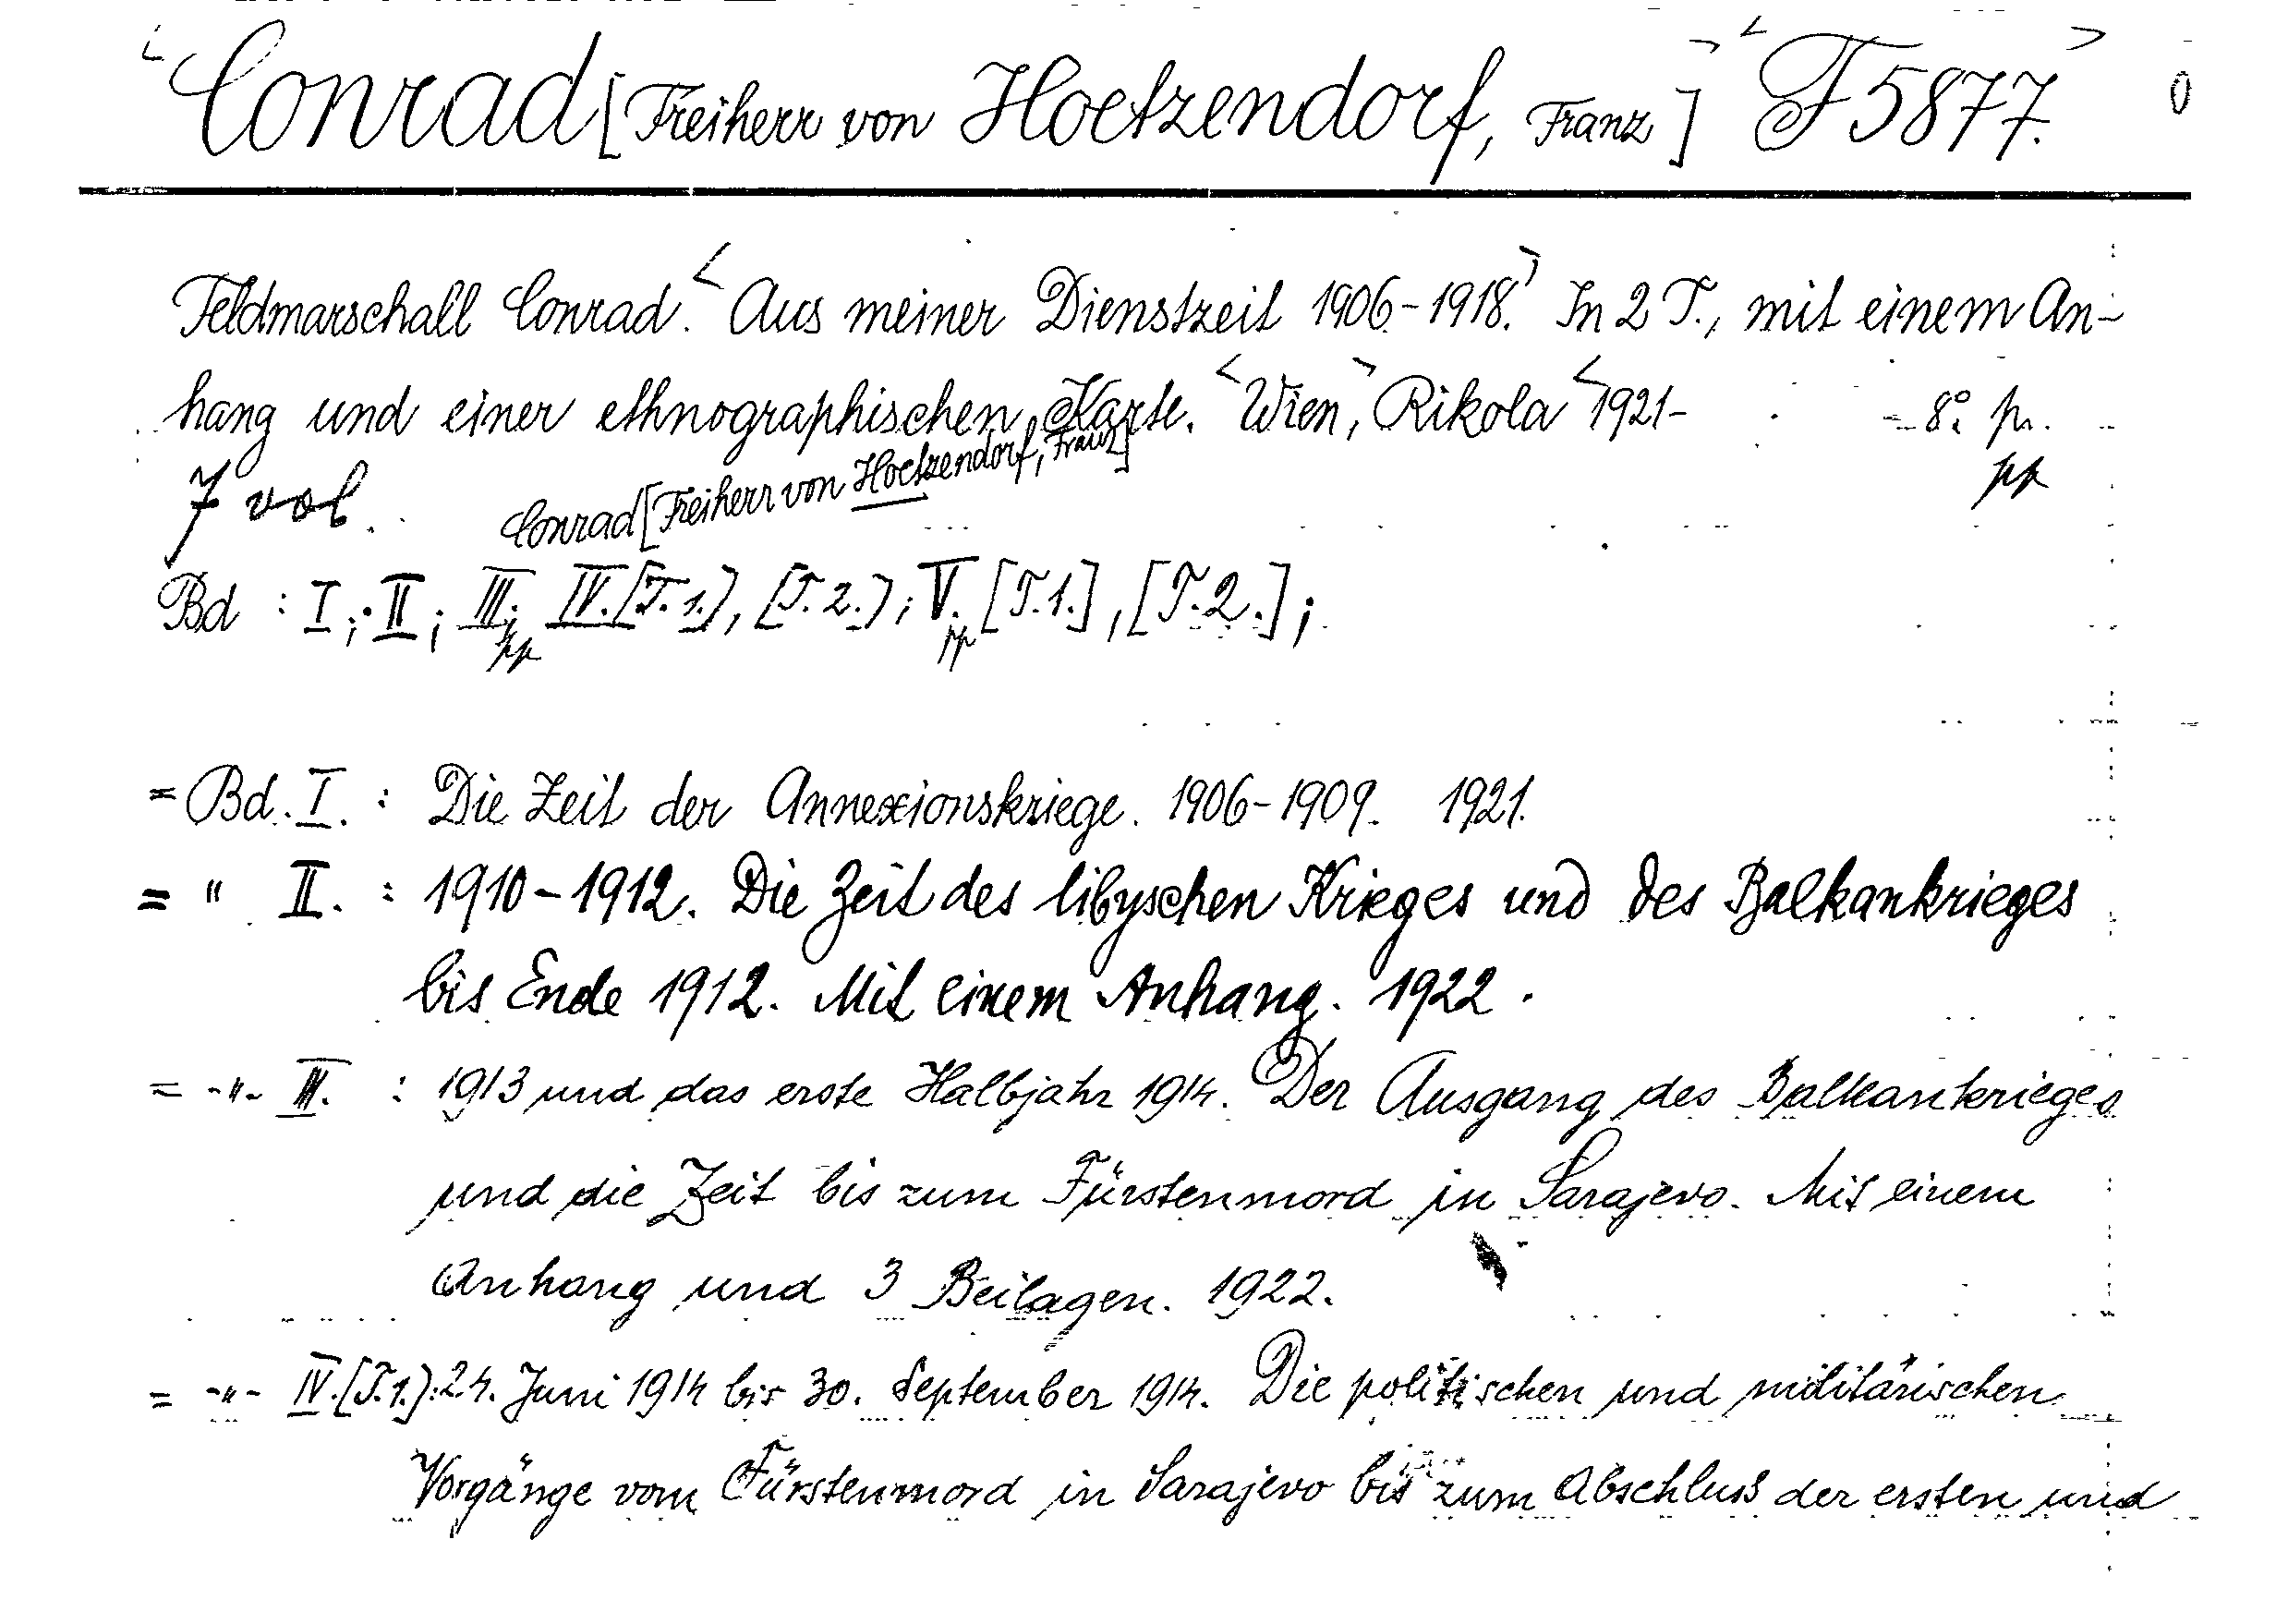 <Conrad [Freiherr von Hoetzendorf, Franz]> <F 5877.>
Feldmarschall Conrad. <Aus meiner Dienstzeit 1906-1918.> In 2 T., mit einem An-
hang und einer ethnographischen Karte. <Wien,> Rikola <1921- = 8° pr.
7 vol. Conrad [Freiherr von Hoetzendorf, Franz] pp
Bd : I; II; III; IV. [T. 1.], [T. 2.]; V. [T. 1.], [T. 2.];
pp pp
= Bd. I. : Die Zeit der Annexionskriege. 1906-1909. 1921.
= " II. : 1910-1912. Die Zeit des libyschen Krieges und des Balkankrieges
bis Ende 1912. Mit einem Anhang. 1922.
= -"- III. : 1913 und das erste Halbjahr 1914. Der Ausgang des Balkankrieges
und die Zeit bis zum Fürstenmord in Sarajevo. Mit einem
Anhang und 3 Beilagen. 1922.
= -"- IV. [T. 1.]: 24. Juni 1914 bis 30. September 1914. Die politischen und militärischen
Vorgänge vom Fürstenmord in Sarajevo bis zum Abschluss der ersten und